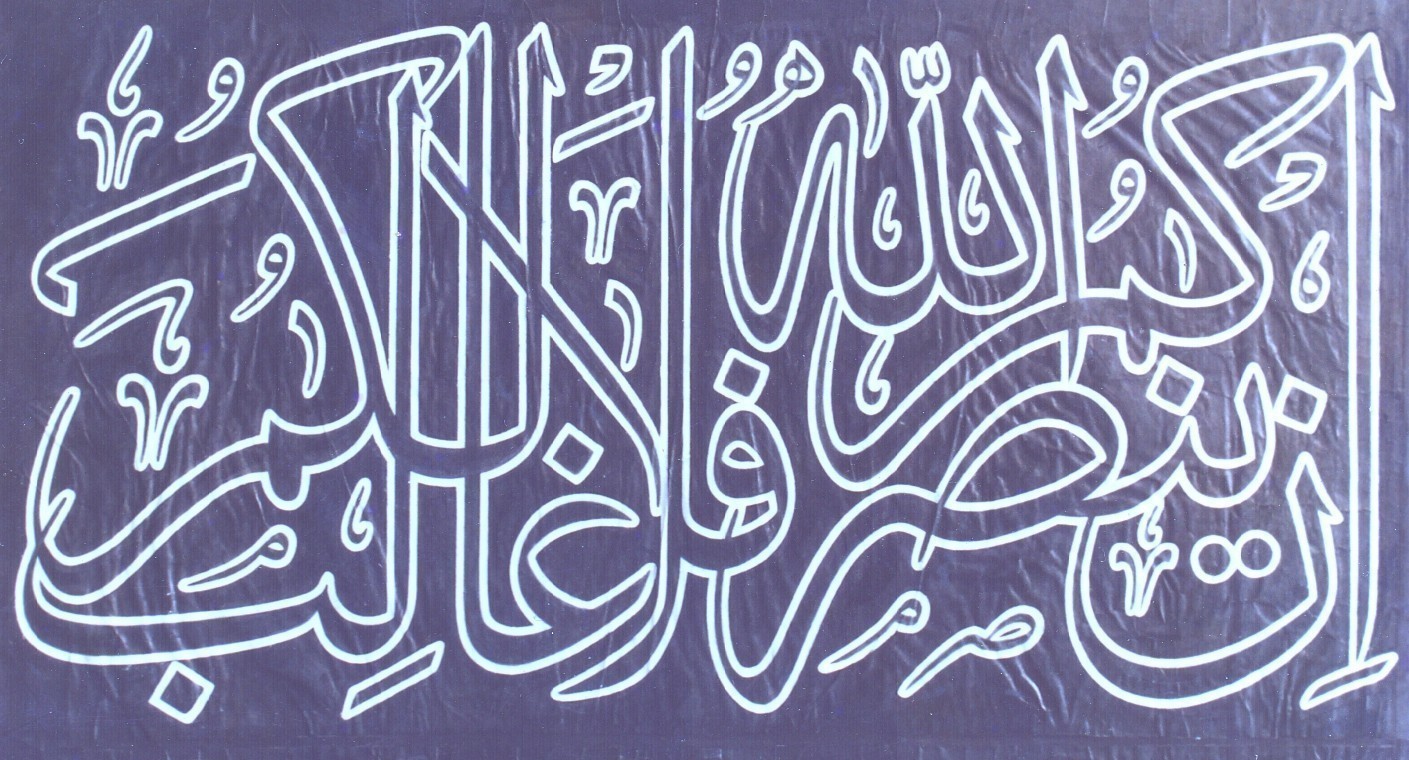 إن ينصركم الله فلا غالب لكم